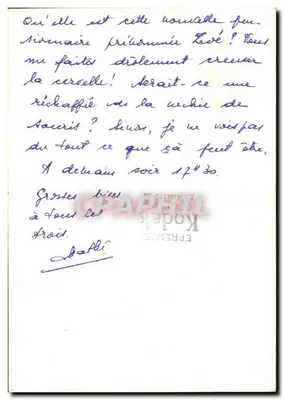 Qu'elle est cette nouvelle pen-
sionnaire prénommée Zoé? Vous
me faites drôlement creuser
la cervelle! Serait-ce une
réchappée de la de
souris? Sinon, je ne vois pas
du tout ce que çà peut être.
A demain soir 17H30.
Grosses bises
à tous les
trois.
CPAPHIL
Kodak
EPREUVE